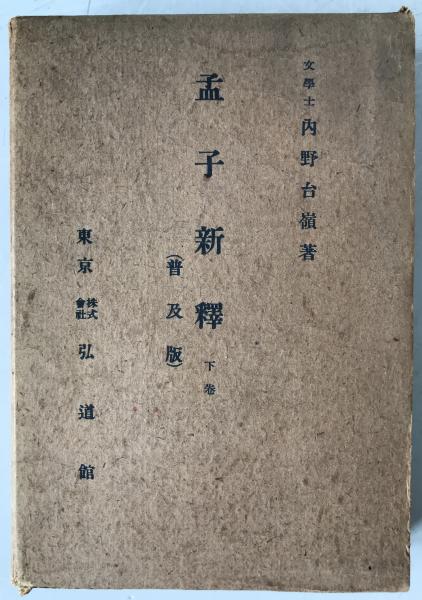 文學士 內野台嶺著
孟子新釋 下卷
(普及版)
東京 株式會社 弘道館